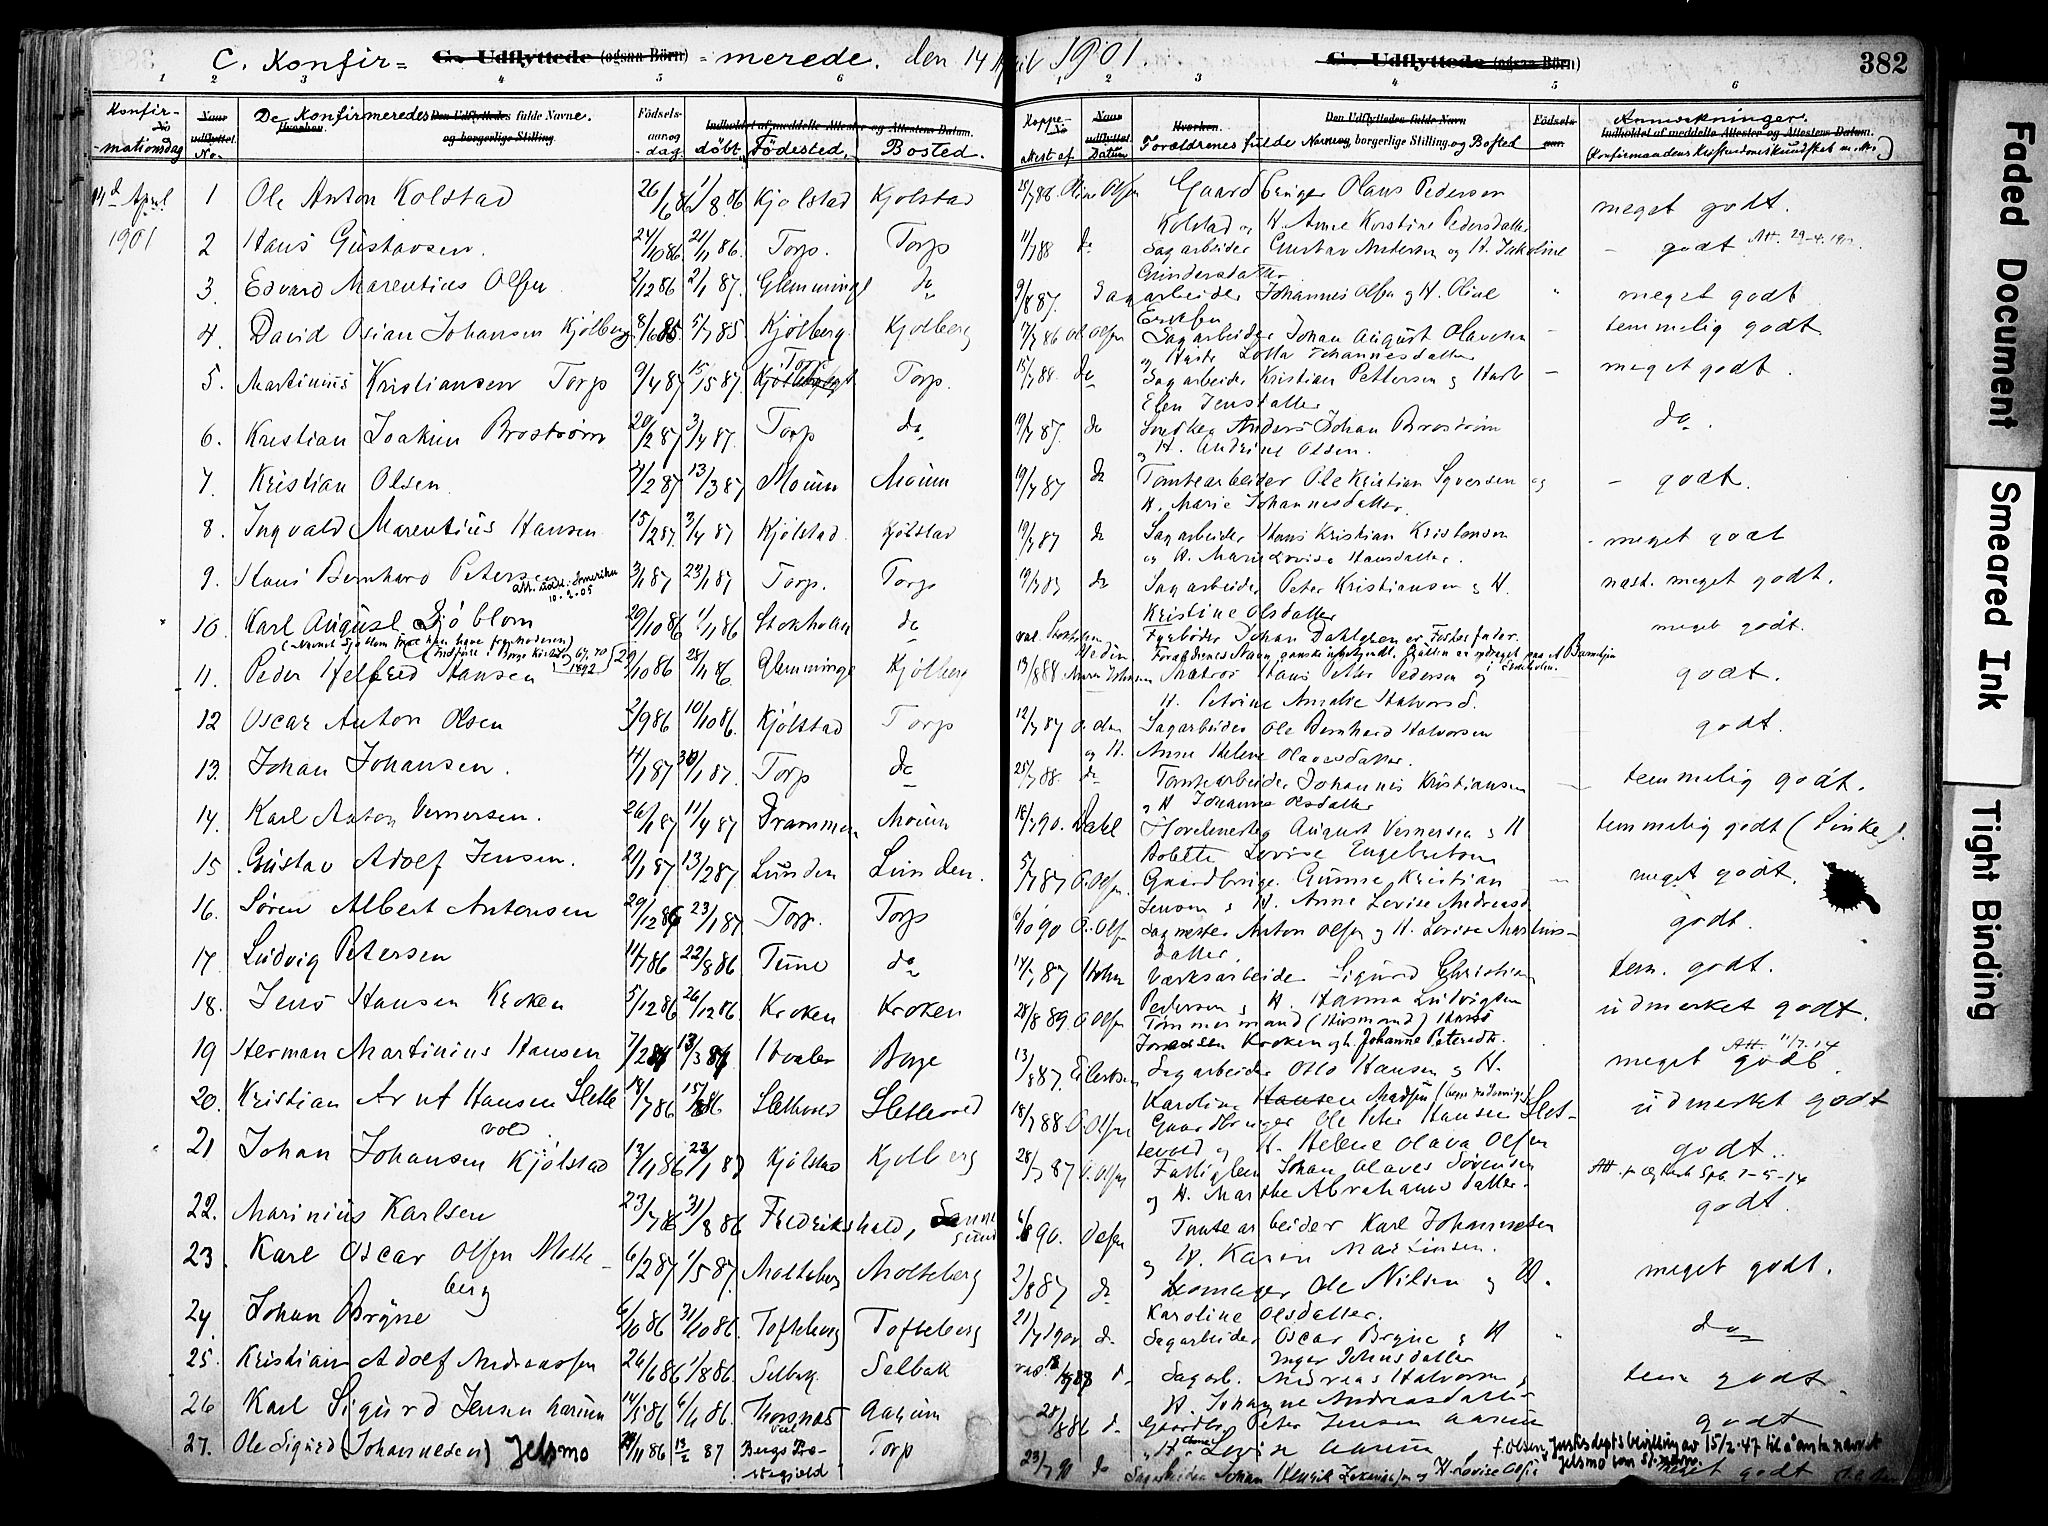 C. Konfir= G. Udflyttede (ogsaa Börn) =merede. den 14 April 1901. G. Udflyttede (ogsaa Börn) 382
1 2 3 4 5 6 1 2 3 4 5 6
Konfir-mationsdag No. De Konfirmeredes fulde Navne. Födsels-aar og -dag. döbt. Födested. Bosted.
Koppe-attest af. Forældrenes fulde Navne, borgerlige Stilling og Bosted Anmærkninger. (Konfirmandens Kristendomskundskab m. m.)
14de April 1901
1 Ole Anton Kolstad 26/6 86 1/8 86 Kjølstad Kjølstad
Gaardbruger Olaus Pedersen
Kolstad og H. Anne Kirstine Pedersdatter meget godt.
2 Hans Gustavsen. 24/10 86 21/11 86. Torp. Torp
11/7 88 do Sagarbeider Gustav Andersen og H. Jakobine - godt
Gundersdatter
3. Edvard Marentius Olsen 2/12 86 2/1 87. Glemminge do
9/8 87. Sagarbeider Johannes Olsen og H. Oline " meget godt
4. David Osian Johansen Kjölberg 8/6 85 5/7 85 Kjölberg. Kjölberg
7/7 86 Ol. Olsen Sagarbeider Johan August Olavesen - temmelig godt
og Hustr Lotta Johannesdatter
5. Martinius Kristiansen Torp 9/4 87 15/5 87. Torp Torp.
15/7 88. do Sagarbeider Kristian Pettersen og Hustr - meget godt.
Elen Jensdatter
6. Kristian Joakim Broström 20/2 87 3/4 87. Torp do
19/7 87. do Snedker Anders Johan Broström do.
og H. Andrine Olsen.
7. Kristian Olsen. 4/2 87 13/3 87 Moum Moum
19/7 87 do Tomtearbeider Ole Kristian Syversen og - godt.
H. Marie Johannesdatter.
8. Ingvald Marentius Hansen. 15/2 87. 3/4 87 Kjölstad. Kjölstad
19/7 87 do Sagarbeider Hans Kristian Kristensen - meget godt
og H. Marie Lovise Hansdatter.
9. Hans Bernhard Petersen 3/1 87 23/1 87 Torp. Torp
Att. udst. Amerika
10.2.05
do Sagarbeider Peter Kristiansen og H. næst. meget godt.
Kristine Olsdatter
10. Karl August Sjöblom 29/10 86 1/11 86 Stokholm do
Fyrböder Johan Dahlgren er Fosterfader. meget godt.
11. Peder Helfred Hansen 29/10 86 28/11 86. Glemminge Kjölberg
13/8 88 Maren Johansen Matros Hans Peter Pedersen og godt.
H. Petrine Amalie Halvorsd.
12 Oscar Anton Olsen 2/9 86 10/10 86. Kjölstad Torp
12/7 87 O. Olsen Sagarbeider Ole Bernhard Halvorsen godt.
og H. Anne Helene Olavesdatter.
13. Johan Johansen. 11/1 87 30/1 87. Torp do
25/7 88. do Tomtearbeider Johannes Kristiansen temmelig godt.
og H Johanne Olsdatter
14. Karl Anton Vernersen. 26/1 87 11/4 87 Drammen Moum
18/7 90. Dahl Hovlemester August Vernersen og H temmelig godt (Sinke).
Bolette Lovise Engebretsen
15 Gustav Adolf Jensen. 21/1 87. 13/2 87 Lunden Lunden.
5/7 87 O. Olsen Gaardbruger Gunne Kristian - meget godt.
Jensen og H. Anne Lovise Andreasd.
16. Sören Albert Antonsen 29/12 86 23/1 87 Torp. Torp
6/10 90 O. Olsen Sagmester Anton Olsen og H. Lovise Martins- godt.
datter.
17. Ludvig Petersen 11/7 86 22/8 86 Tune do
14/7 87 Holm Værksarbeider Sigurd Christian tem. godt.
Pedersen og H. Hanna Ludvigsen
18. Jens Hansen Kroken 5/12 86 26/12 86. Kroken Kroken
28/8 89. O. Olsen Tömmermand (Husmand) Hans udmerket godt.
Jonassen Kroken og h. Johanne Petersdtr.
19 Herman Martinius Hansen 7/2 86 13/3 86 Hvaler Borge
13/8 87. Eilertsen Sagarbeider Otto Hansen og H. meget godt.
Karoline Hansen Madsen
20. Kristian Arnt Hansen Slette 18/7 86 15/8 86 Slettevold Slettevold
vold
18/7 88 O. Olsen Gaardbruger Ole Peter Hansen Slet- udmerket godt
tevold og H. Helene Olava Olsen
21 Johan Johansen Kjölstad 13/11 86 23/1 87 Kjölstad Kjölberg
28/7 87 O. Olsen Fattiglem Johan Olaves Sörensen godt.
og H. Marthe Abrahamsdatter.
22. Marinius Karlsen 23/7 86 31/8 86 Fredrikshald, Sannesund
90. Olsen Tomtearbeider Karl Johannesen godt.
og H. Karen Martinsen.
23. Karl Oscar Olsen Molte- 6/2 87 1/5 87. Molteberg Molteberg
berg
2/8 87 do Skomager Ole Nilsen og H. meget godt.
Karoline Olsdatter.
24 Johan Bryne 6/10 86 31/10 86. Tofteberg Tofteberg
21/7 1900 do Sagarbeider Oscar Bryne og H " do
Inger Johnsdatter
25. Kristian Adolf Andreassen 26/6 86 1/8 86. Selbak. Selbak
do Sagarb. Andreas Halvorsen og tem godt.
H. Johanne Andreasdatter
26 Karl Sigurd Jensen Aarum 14/5 86 6/6 86. Thorsnæs Aarum
do Gaardbr. Peter Jensen Aarum godt
" H. Lovise Aarum
27. Ole Sigurd (Johannesen) Jelsmo 11 86 13/2 87 Bergs Torp
23/7 90 do Sagarbeider Johan Henrik og H. Lovise meget godt
f. Olsen, Justisdepts bevilling av 15/2-47 til å anta navnet
Jelsmo som sl.navn.
Faded Document
Smeared Ink
Tight Binding